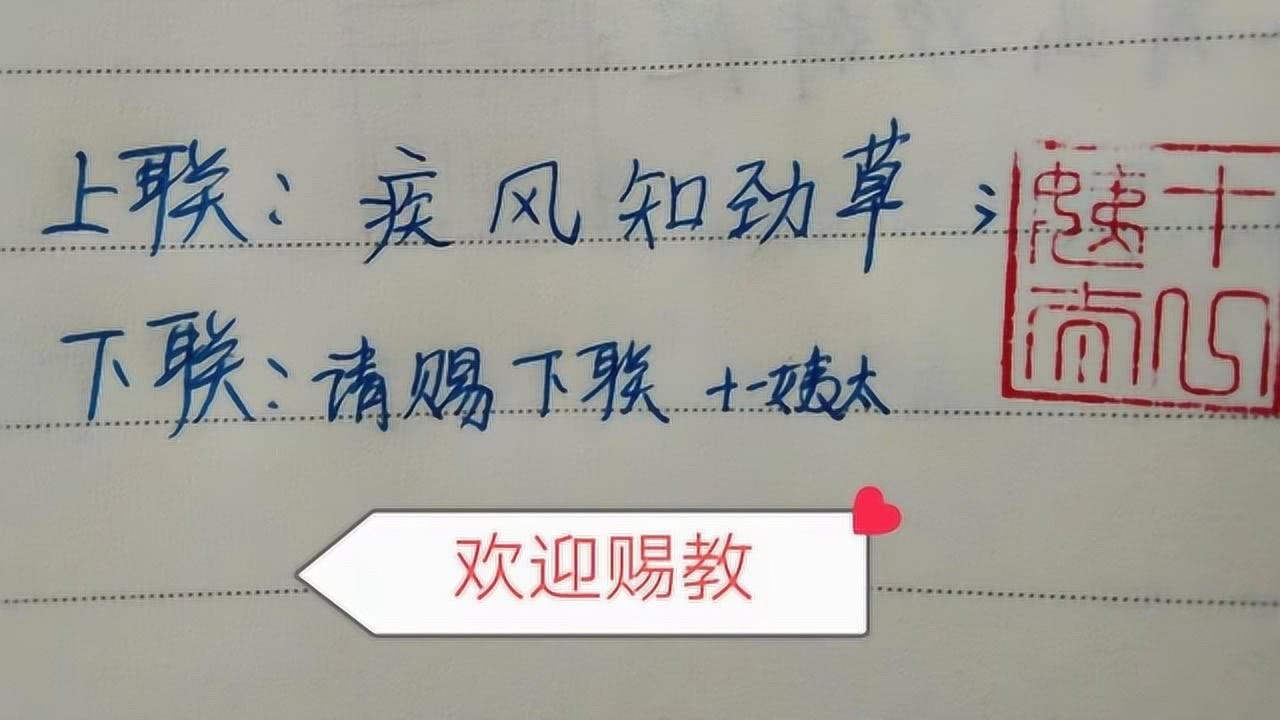 上联：疾风知劲草；
下联：请赐下联 十一姨太
欢迎赐教